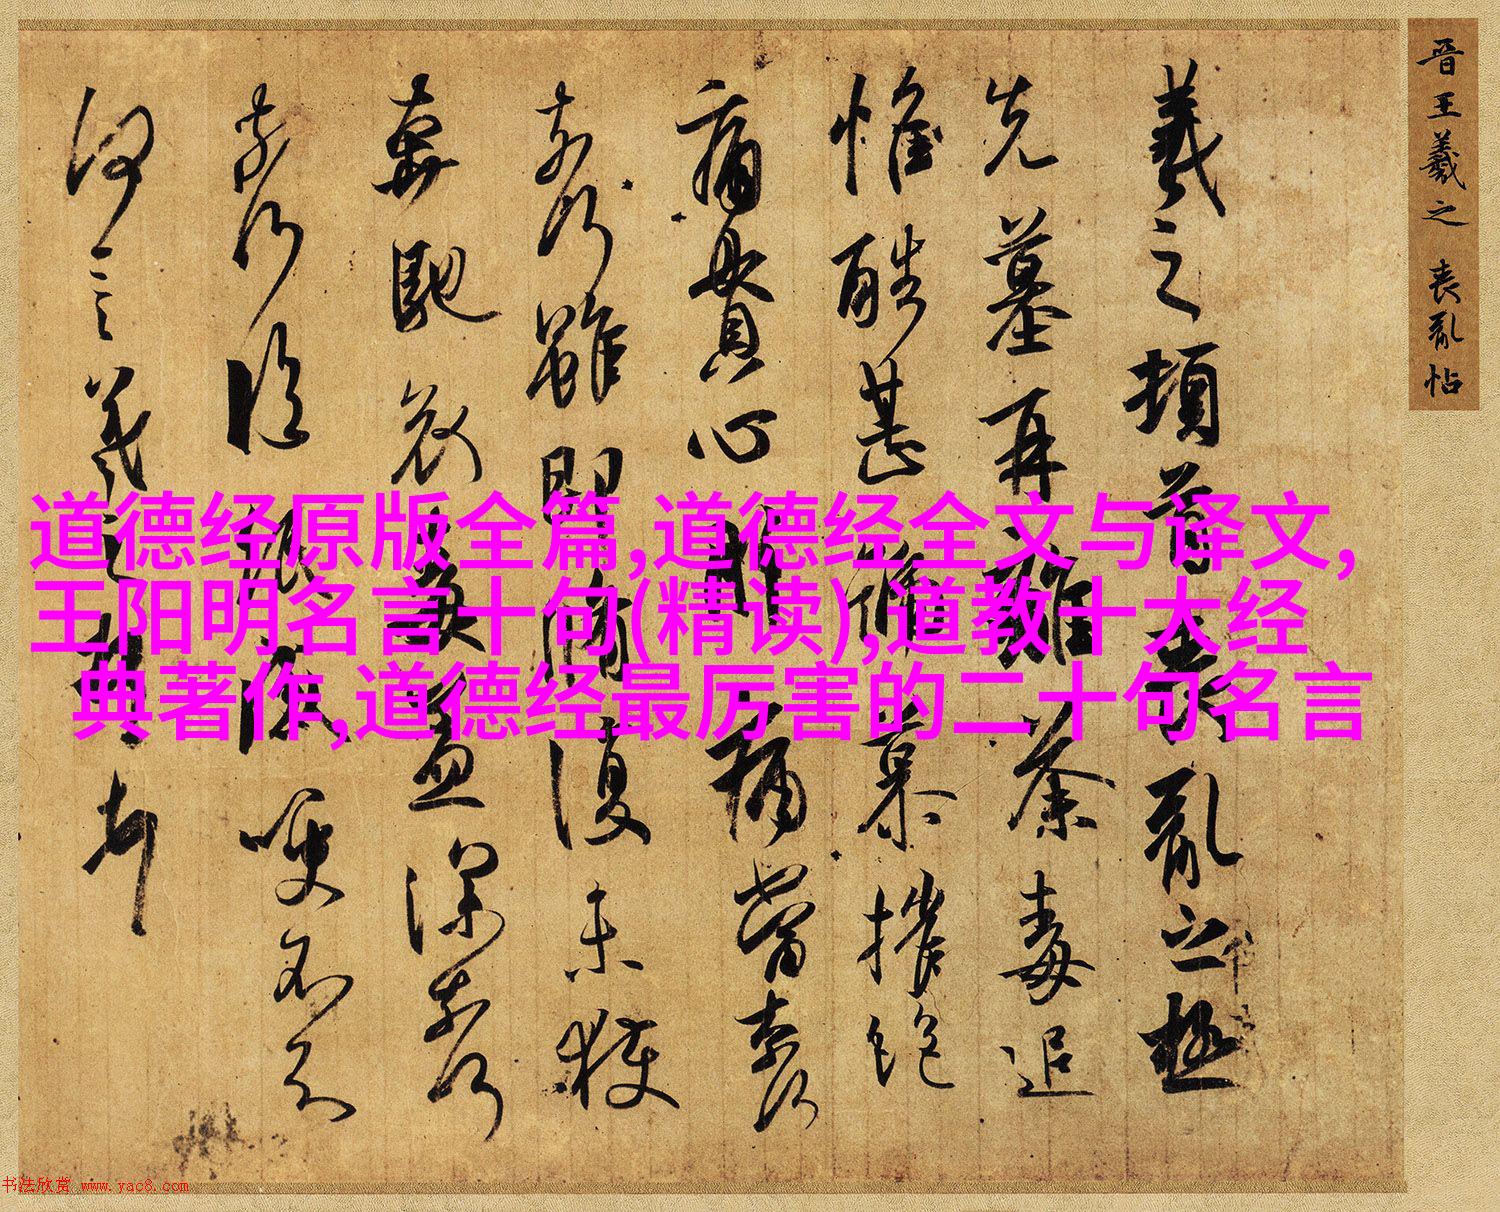 晋王羲之 喪亂帖
羲之頓首喪亂之極
先墓再離荼毒追
惟酷甚號慕摧絕
痛貫心肝痛當奈何
奈何雖即脩復未獲
奔馳哀毒益深奈何
奈何臨紙感哽不知
何言羲之頓首頓首
道德经原版全篇,道德经全文与译文,
王阳明名言十句(精读),道教十大经
典著作,道德经最厉害的二十句名言
书法欣赏 www.yac8.com